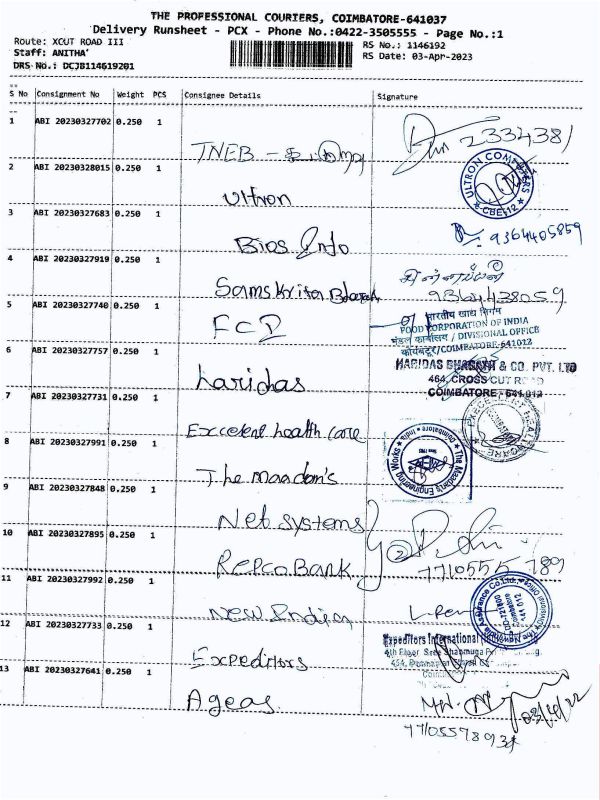 THE PROFESSIONAL COURIERS, COIMBATORE-641037
Delivery Runsheet - PCX - Phone No.:0422-3505555 - Page No.:1
Route: XCUT ROAD III
RS No.: 1146192
Staff: ANITHA'
RS Date: 03-Apr-2023
DRS No.: DCJB114619201
S No Consignment No Weight PCS Consignee Details Signature
1 ABI 20230327702 0.250 1
TNEB - 2334381
2 ABI 20230328015 0.250 1
Ultron
ULTRON COMPUTERS
CBE-12
3 ABI 20230327683 0.250 1
Bios Info 9364405859
4 ABI 20230327919 0.250 1
Samskrita Bharati
9364438059
5 ABI 20230327740 0.250 1
FCI
भारतीय खाद्य निगम
FOOD CORPORATION OF INDIA
मंडल कार्यालय / DIVISIONAL OFFICE
कोयंबटूर/COIMBATORE-641012
6 ABI 20230327757 0.250 1
haridas
HARIDAS BHAGATH & CO. PVT. LTD
464, CROSS CUT ROAD
COIMBATORE - 641 012
7 ABI 20230327731 0.250 1
Excelent health care
8 ABI 20230327991 0.250 1
The maadam's
The Maadam's Engineering Works
Coimbatore India
9 ABI 20230327848 0.250 1
Net systems
10 ABI 20230327895 0.250 1
Repco Bank
7710555789
11 ABI 20230327992 0.250 1
New India
12 ABI 20230327733 0.250 1
Expeditors
Expeditors International
13 ABI 20230327641 0.250 1
Ageas
03/4/22